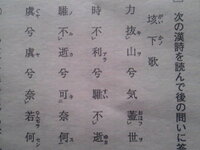 】次の漢詩を読んで後の問いに答
垓下歌
力抜山兮気蓋世
時不利兮騅不逝
騅不逝兮可奈何
虞兮虞兮奈若何